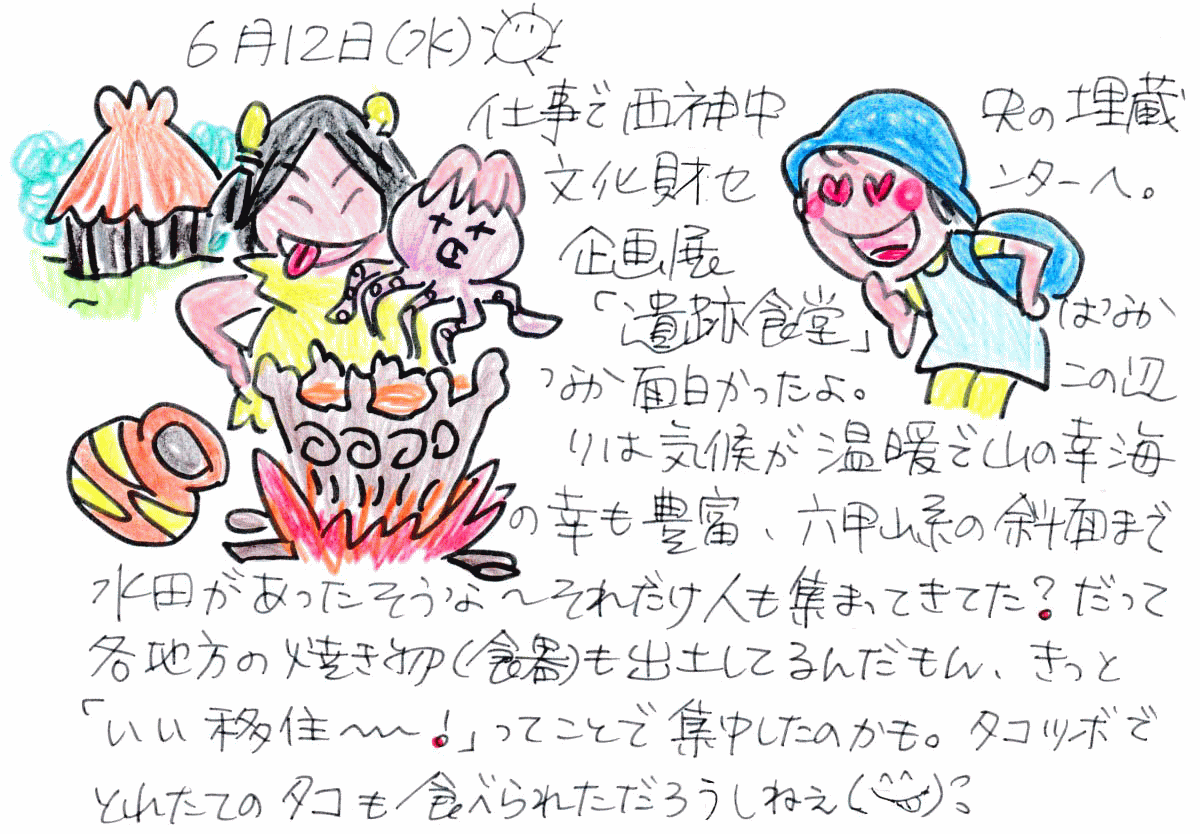 6月12日(水)
仕事で西神中央の埋蔵
文化財センターへ。
企画展
「遺跡食堂」はなか
なか面白かったよ。この辺
りは気候が温暖で山の幸海
の幸も豊富、六甲山系の斜面まで
水田があったそうな〜それだけ人も集まってきてた?だって
各地方の焼き物(食器)も出土してるんだもん、きっと
「いい移住〜〜!」ってことで集中したのかも。タコツボで
とれたてのタコも食べられただろうしねぇ(^^)